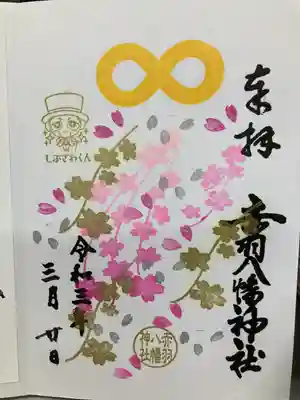 奉拝
赤羽八幡神社
令和三年
三月廿日
しぶさわくん
赤羽
八幡
神社